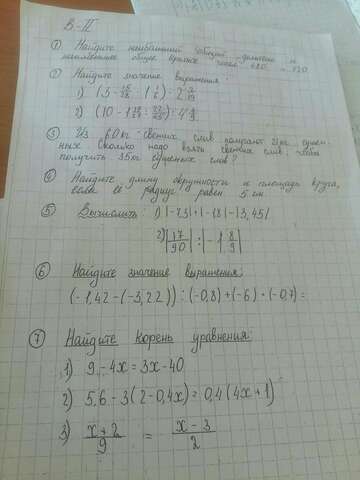 В-II
① Найдите наибольший общий делитель и
наименьшее общее кратное чисел
② Найдите значение выражения:
1)
2)
③ Из 60 кг свежих слив получают 21 кг сушен-
ных. Сколько надо взять свежих слив, чтобы
получить 35 кг сушеных слив?
④ Найдите длину окружности и площадь круга,
если её радиус равен 5 см
⑤ Вычислить: 1) |-7,3|+|-1,8|-|3,45|
2) |17/90| : |-1 8/9|
⑥ Найдите значение выражения:
(-1,42-(-3,22)):(-0,8)+(-6)·(-0,7)=
⑦ Найдите корень уравнения:
1) 9-4x=3x-40
2) 5,6-3(2-0,4x)=0,4(4x+1)
3) x+2/9 = x-3/2